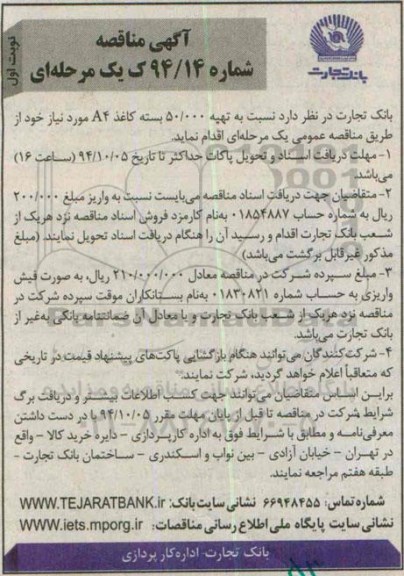 نوبت اول
آگهی مناقصه
شماره ۹۴/۱۴ک یک مرحله‌ای
بانک تجارت
بانک تجارت در نظر دارد نسبت به تهیه ۵۰/۰۰۰ بسته کاغذ A۴ مورد نیاز خود از
طریق مناقصه عمومی یک مرحله‌ای اقدام نماید.
۱- مهلت دریافت اسناد و تحویل پاکات حداکثر تا تاریخ ۹۴/۱۰/۰۵ (ساعت ۱۶)
می‌باشد.
۲- متقاضیان جهت دریافت اسناد مناقصه می‌بایست نسبت به واریز مبلغ ۲۰۰/۰۰۰
ریال به شماره حساب ۰۱۸۵۴۸۸۷ به‌نام کارمزد فروش اسناد مناقصه نزد هریک از
شعب بانک تجارت اقدام و رسید آن را هنگام دریافت اسناد تحویل نمایند. (مبلغ
مذکور غیرقابل برگشت می‌باشد)
۳- مبلغ سپرده شرکت در مناقصه معادل ۲۱۰/۰۰۰/۰۰۰ ریال، به صورت فیش
واریزی به حساب شماره ۰۱۸۳۰۸۲۱ به‌نام بستانکاران موقت سپرده شرکت در
مناقصه نزد هریک از شعب بانک تجارت و یا معادل آن ضمانتنامه بانکی به‌غیر از
بانک تجارت می‌باشد.
۴- شرکت‌کنندگان می‌توانند هنگام بازگشایی پاکت‌های پیشنهاد قیمت در تاریخی
که متعاقباً اعلام خواهد گردید، شرکت نمایند.
براین اساس متقاضیان می‌توانند جهت کسب اطلاعات بیشتر و دریافت برگ
شرایط شرکت در مناقصه تا قبل از پایان مهلت مقرر ۹۴/۱۰/۰۵ با در دست داشتن
معرفی‌نامه و مطابق با شرایط فوق به اداره کارپردازی - دایره خرید کالا - واقع
در تهران - خیابان آزادی - بین نواب و اسکندری - ساختمان بانک تجارت -
طبقه هفتم مراجعه نمایند.
شماره تماس: ۶۶۹۴۸۴۵۵ نشانی سایت بانک: WWW.TEJARATBANK.ir
نشانی سایت پایگاه ملی اطلاع رسانی مناقصات: WWW.iets.mporg.ir
بانک تجارت - اداره کارپردازی